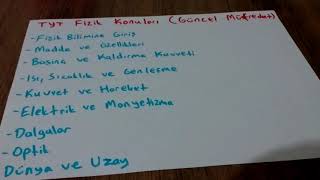 TYT Fizik Konuları (Güncel Müfredat)
- Fizik Bilimine Giriş
- Madde ve Özellikleri
- Basınç ve Kaldırma Kuvveti
- Isı, Sıcaklık ve Genleşme
- Kuvvet ve Hareket
- Elektrik ve Manyetizma
- Dalgalar
- Optik
Dünya ve Uzay